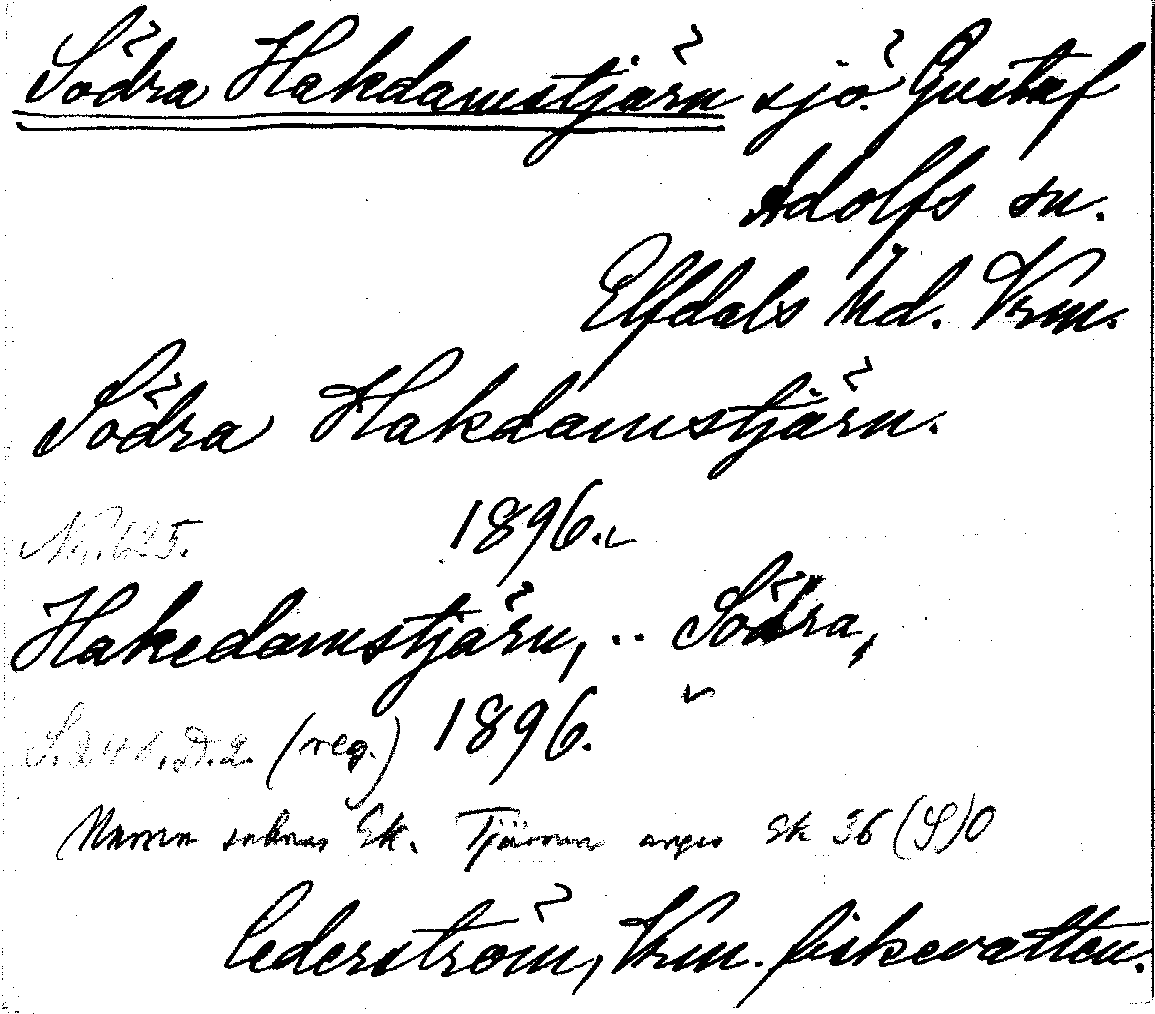 Södra Hakdamstjärn sjö. Gustaf
Adolfs sn.
Elfdals hd. Vrm.
Södra Hakdamstjärn.
Nr. 625. 1896.
Hakedamstjärn, .. Södra,
S. 241. D. 2. (reg.) 1896.
Namn saknas Ek. Tjärnen anges Ek 36 (S)O
Cederström, Vrm. fiskevatten.